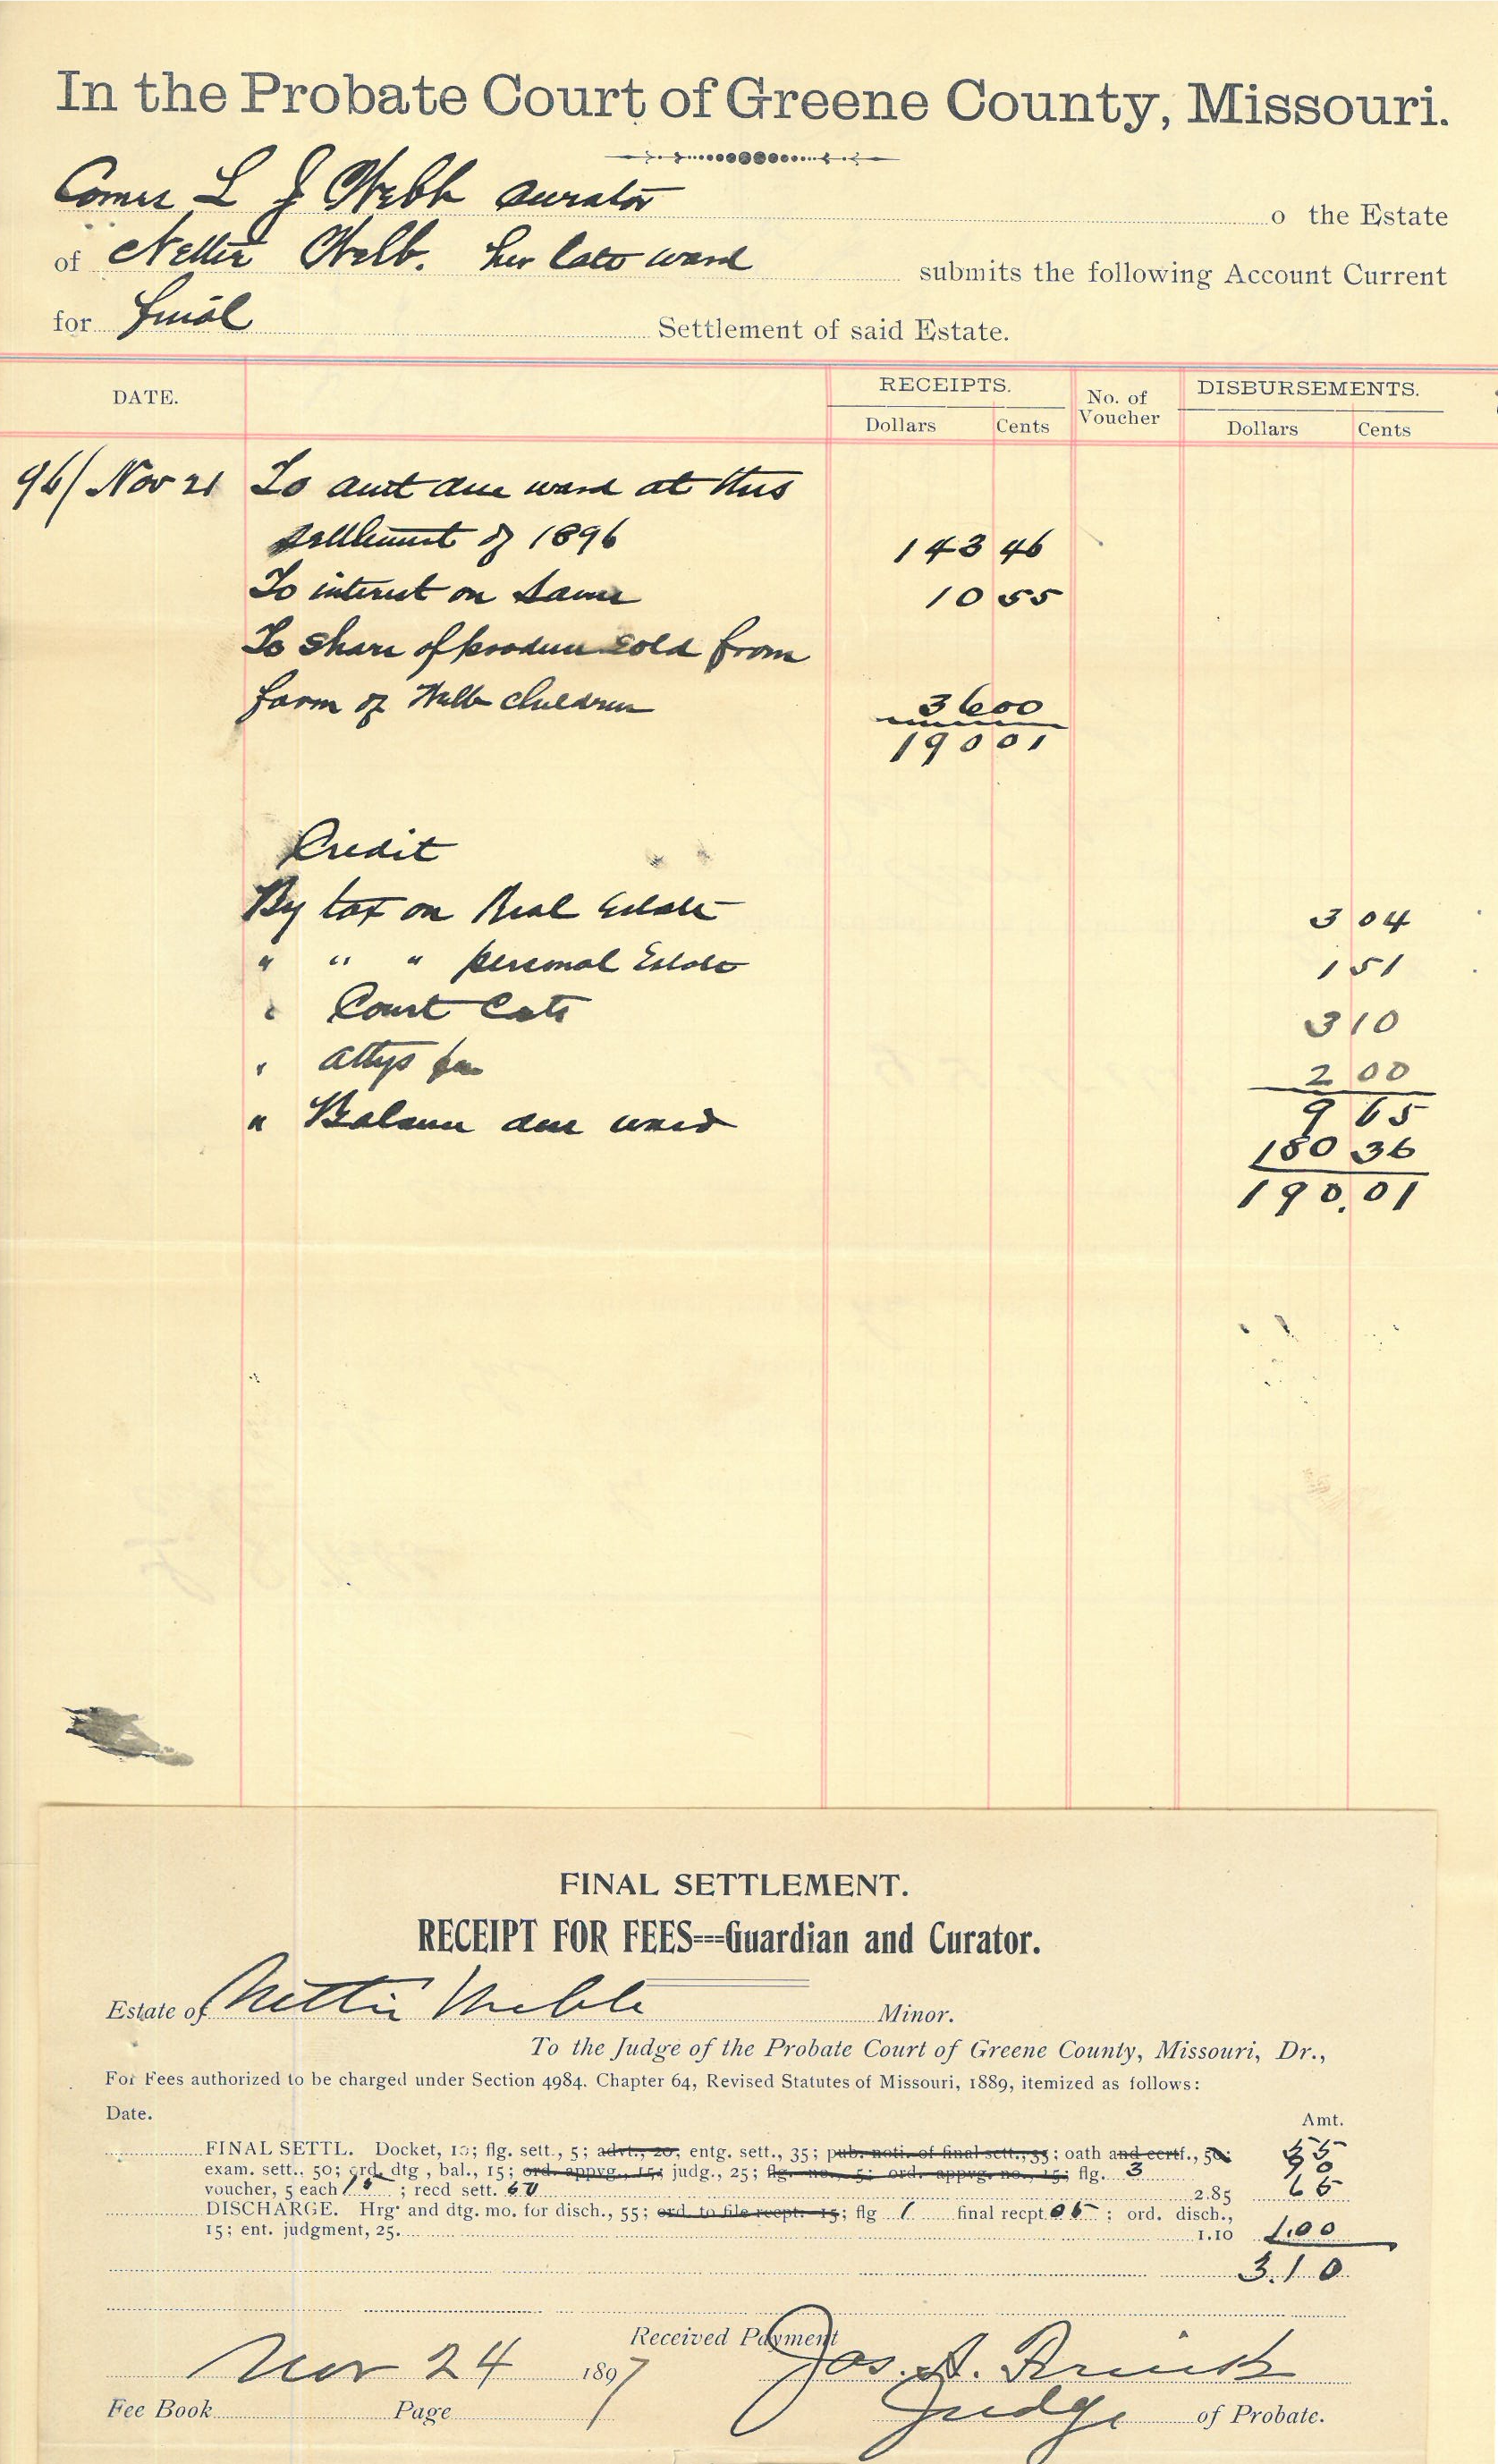 In the Probate Court of Greene County, Missouri.
Comes L J Webb Curator o the Estate
of Nettie Webb. her late ward submits the following Account Current
for final Settlement of said Estate.
DATE. RECEIPTS. No. of Voucher DISBURSEMENTS.
Dollars Cents Dollars Cents
96/ Nov 21 To amt due ward at this
settlement of 1896 143 46
To interest on same 10 55
To share of produce sold from
farm of Webb children 36 00
190 01
Credit
By tax on Real Estate 3 04
" " " personal Estate 1 51
" Court Costs 3 10
" Attys fee 2 00
9 65
" Balance due ward 180 36
190.01
FINAL SETTLEMENT.
RECEIPT FOR FEES---Guardian and Curator.
Estate of Nettie Webb Minor.
To the Judge of the Probate Court of Greene County, Missouri, Dr.,
For Fees authorized to be charged under Section 4984. Chapter 64, Revised Statutes of Missouri, 1889, itemized as follows:
Date. Amt.
FINAL SETTL. Docket, 10; flg. sett., 5; advt., 20; entg. sett., 35; pub. noti. of final sett., 35; oath and certf., 50; 55
exam. sett.. 50; ord. dtg , bal., 15; ord. appvg., 15; judg., 25; flg. no., 5; ord. appvg. no., 15; flg. 3 90
voucher, 5 each 15 ; recd sett. 60 2.85 65
DISCHARGE. Hrg. and dtg. mo. for disch., 55; ord. to file recpt. 15; flg 1 final recpt 05 ; ord. disch.,
15; ent. judgment, 25. 1.10 1.00
3.10
Received Payment
Nov 24 1897 Jos. A.
Judge of Probate.
Fee Book Page